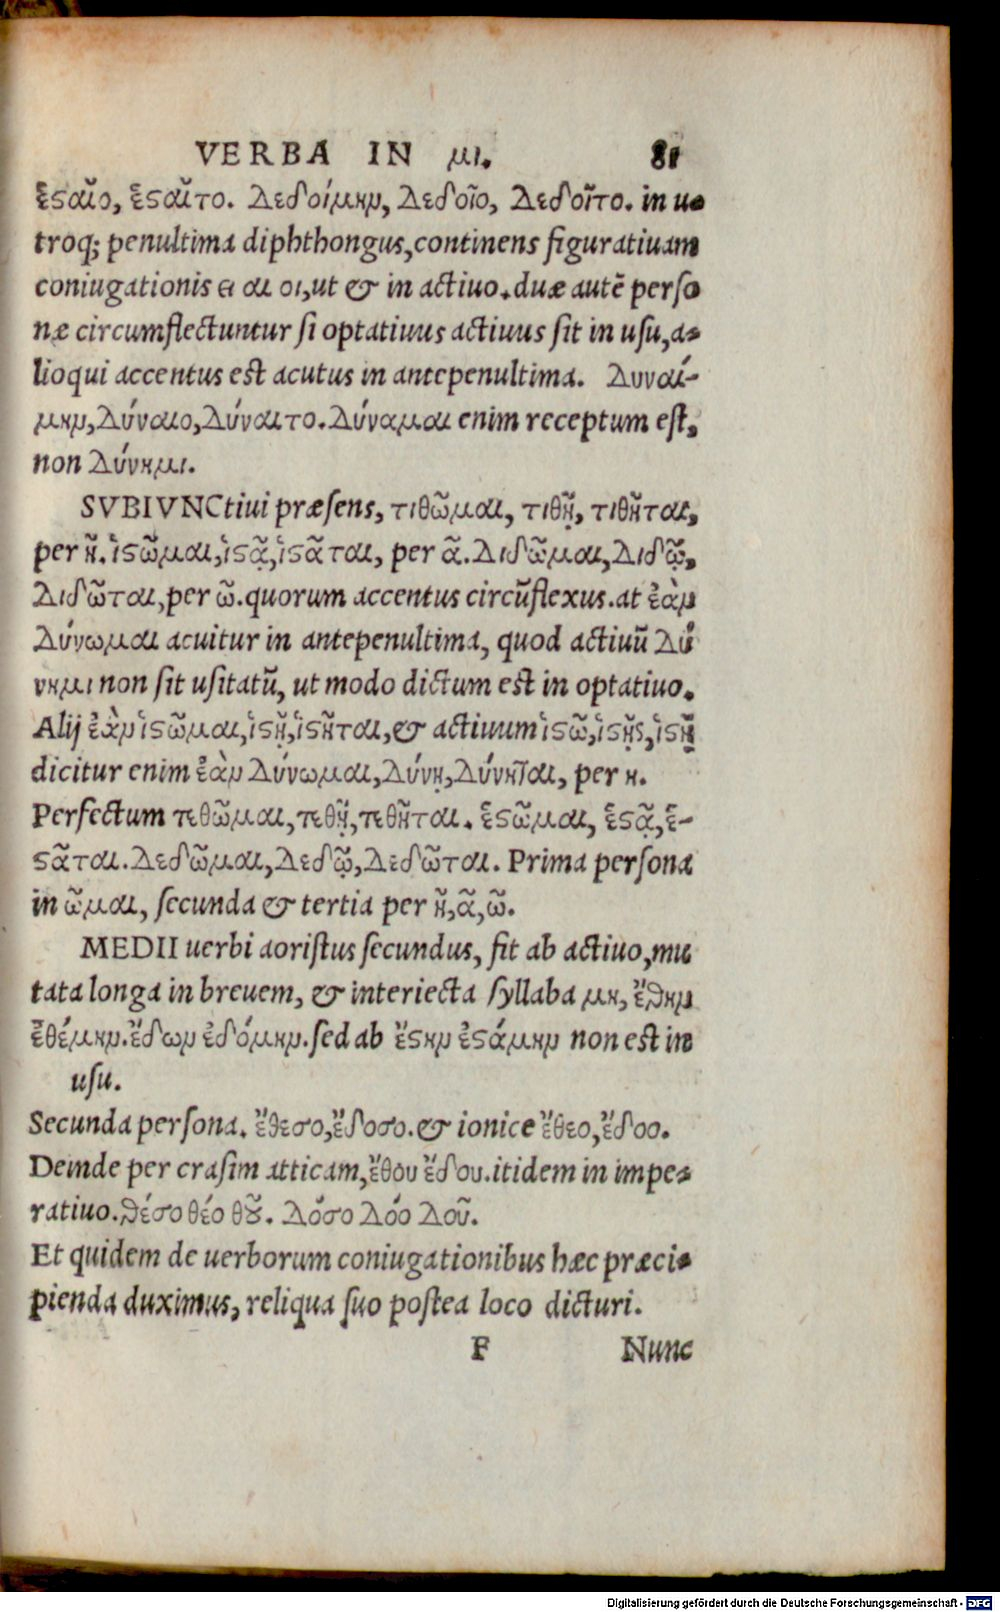 VERBA IN μι. 81
ἑϛαῖο, ἑϛαῖτο. Δεδοίμην, Δεδοῖο, Δεδοῖτο. in u-
troq; penultima diphthongus, continens figuratiuam
coniugationis ει αι οι, ut & in actiuo. duæ autē perso
næ circumflectuntur si optatiuus actiuus sit in usu, a-
lioqui accentus est acutus in antepenultima. Δυναί-
μην, Δύναιο, Δύναιτο. Δύναμαι enim receptum est,
non Δύνημι.
SVBIVNCtiui præsens, τιθῶμαι, τιθῇ, τιθῆται,
per ῆ. ἱϛῶμαι, ἱϛᾷ, ἱϛᾶται, per ᾶ. Διδῶμαι, Διδῷ,
Διδῶται, per ῶ. quorum accentus circūflexus. at ἐὰν
Δύνωμαι acuitur in antepenultima, quod actiuū Δύ
νημι non sit usitatū, ut modo dictum est in optatiuo.
Alij ἐὰν ἱϛῶμαι, ἱϛῇ, ἱϛῆται, & actiuum ἱϛῶ, ἱϛῇς, ἱϛῇ
dicitur enim ἐὰν Δύνωμαι, Δύνῃ, Δύνηται, per η.
Perfectum τεθῶμαι, τεθῇ, τεθῆται. ἑϛῶμαι, ἑϛᾷ, ἑ-
ϛᾶται. Δεδῶμαι, Δεδῷ, Δεδῶται. Prima persona
in ῶμαι, secunda & tertia per ῆ, ᾶ, ῶ.
MEDII uerbi aoristus secundus, fit ab actiuo, mu
tata longa in breuem, & interiecta syllaba μη, ἔθην
ἐθέμην. ἔδων ἐδόμην. sed ab ἔϛην ἐϛάμην non est in
usu.
Secunda persona. ἔθεσο, ἔδοσο. & ionice ἔθεο, ἔδοο.
Deinde per crasim atticam, ἔθου ἔδου. itidem in impe-
ratiuo. θέσο θέο θοῦ. Δόσο Δόο Δοῦ.
Et quidem de uerborum coniugationibus hæc præci-
pienda duximus, reliqua suo postea loco dicturi.
F Nunc
Digitalisierung gefördert durch die Deutsche Forschungsgemeinschaft - DFG